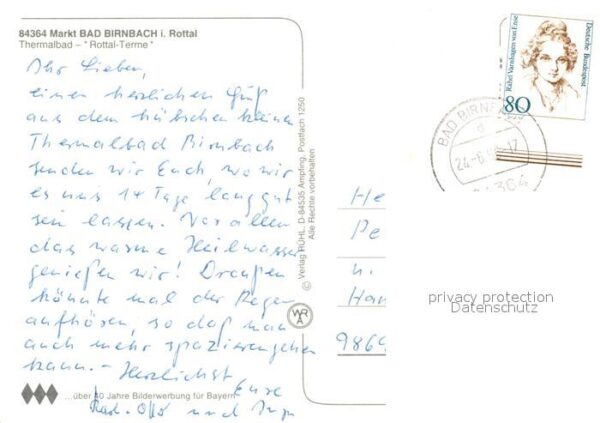 84364 Markt BAD BIRNBACH i. Rottal
Thermalbad – "Rottal-Terme"
Ihr Lieben,
einen herzlichen Gruß
aus dem hübschen kleinen
Thermalbad Birnbach
senden wir Euch, wo wir
es uns 14 Tage lang gut
sein lassen. Vor allem
das warme Heilwasser
genießen wir! Draußen
könnte mal der Regen
aufhören, so daß man
auch mehr spazierengehen
kann. – Herzlichst
Eure
Otto und
...über 40 Jahre Bilderwerbung für Bayern
© Verlag RÜHL, D-84535 Ampfing, Postfach 1250
Alle Rechte vorbehalten
WRA
Rahel Varnhagen von Ense
Deutsche Bundespost
80
BAD BIRNBACH
d
24.-6.
-17
84364
He
Pe
Han
9869
privacy protection
Datenschutz